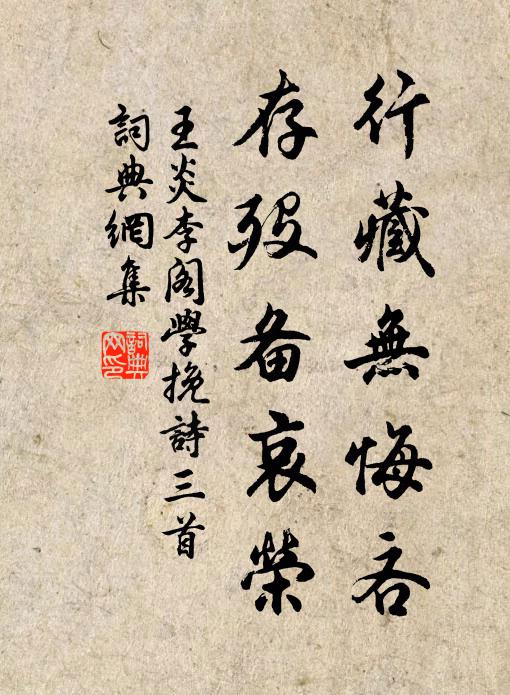 行藏無悔吝
存歿备哀榮
王炎李阁學挽詩三首
詞典網集
詞典网印